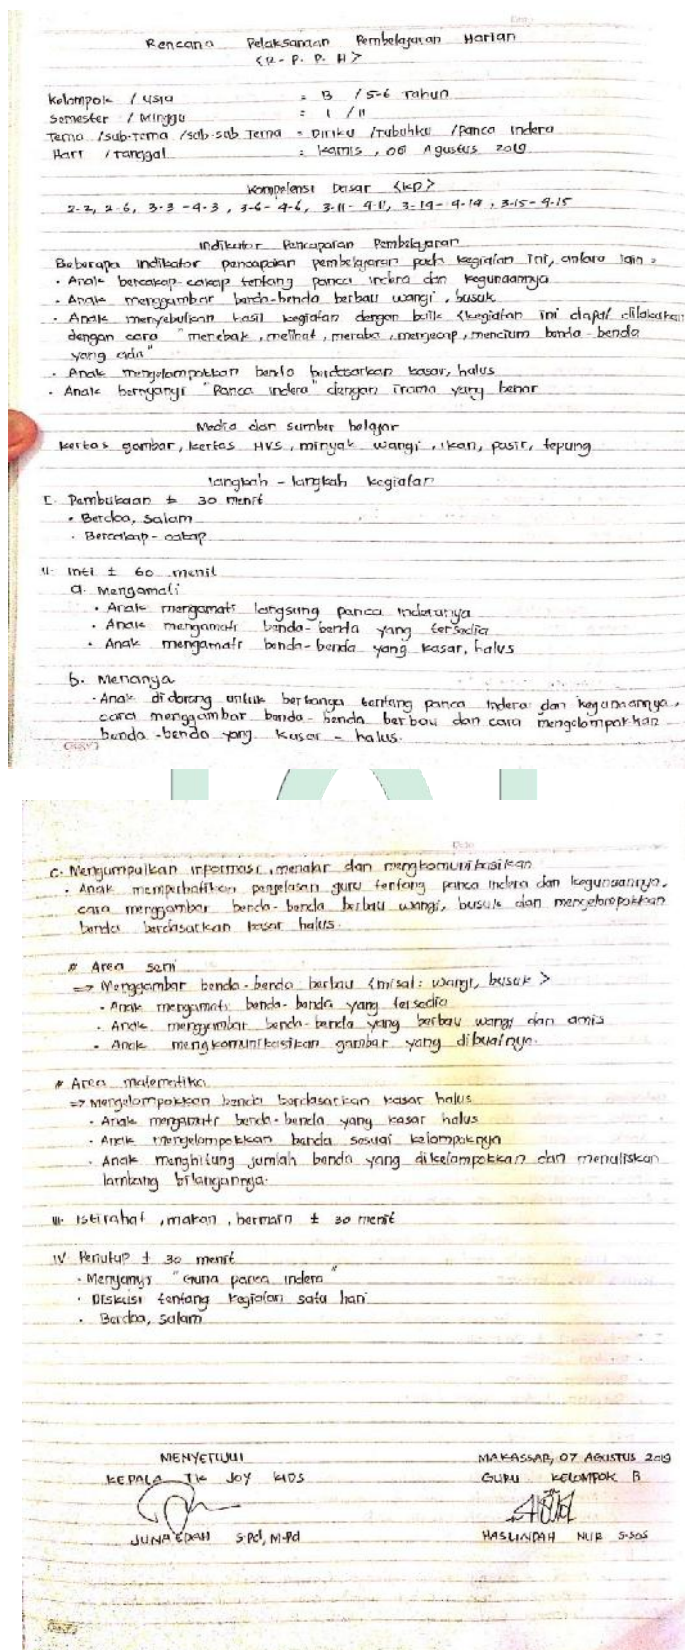 Rencana Pelaksanaan Pembelajaran Harian
<R. P. P. H>
Kelompok / usia = B / 5-6 Tahun
Semester / Minggu = I / II
Tema /sub-tema /sub-sub Tema = Diriku /Tubuhku /Panca Indera
Hari / Tanggal : Kamis, Agustus 2019
Kompetensi Dasar <KD>
2-2, 2-6, 3-3-4-3, 3-6-4-6, 3-11-4-11, 3-14-4-14, 3-15-4-15
Indikator Pencapaian Pembelajaran
Beberapa indikator pencapaian pembelajaran pada kegiatan ini, antara lain =
· Anak bercakap-cakap tentang panca indera dan kegunaannya
· Anak menggambar benda-benda berbau wangi, busuk
· Anak menyebutkan hasil kegiatan dengan baik <kegiatan ini dapat dilakukan
dengan cara "menebak, melihat, meraba, mengecap, mencium benda-benda
yang ada"
· Anak mengelompokkan benda berdasarkan kasar, halus
· Anak bernyanyi "Panca indera" dengan irama yang benar
Media dan sumber belajar
kertas gambar, kertas HVS, minyak wangi, ikan, pasir, tepung
langkah - langkah kegiatan
I. Pembukaan ± 30 menit
· Berdoa, salam
· Bercakap-cakap
II. Inti ± 60 menit
a. Mengamati
· Anak mengamati langsung panca inderanya
· Anak mengamati benda-benda yang tersedia
· Anak mengamati benda-benda yang kasar, halus
b. Menanya
· Anak didorong untuk bertanya tentang panca indera dan kegunaannya,
cara menggambar benda-benda berbau dan cara mengelompokkan
benda-benda yang kasar - halus.
c. Mengumpulkan informasi, menalar dan mengkomunikasikan
· Anak memperhatikan penjelasan guru tentang panca indera dan kegunaannya,
cara menggambar benda-benda berbau wangi, busuk dan mengelompokkan
benda berdasarkan kasar halus.
# Area seni
=> Menggambar benda-benda berbau <misal: wangi, busuk >
· Anak mengamati benda-benda yang tersedia
· Anak menggambar benda-benda yang berbau wangi dan amis
· Anak mengkomunikasikan gambar yang dibuatnya.
# Area matematika
=> Mengelompokkan benda berdasarkan kasar halus
· Anak mengamati benda-benda yang kasar halus
· Anak mengelompokkan benda sesuai kelompoknya
· Anak menghitung jumlah benda yang dikelompokkan dan menuliskan
lambang bilangannya.
III. Istirahat, makan, bermain ± 30 menit
IV Penutup ± 30 menit
· Menyanyi "Guna panca indera"
· Diskusi tentang kegiatan satu hari
· Berdoa, salam
MENYETUJUI
KEPALA TK JOY KIDS
JUNAEDAH S.Pd, M.Pd
MAKASSAR, 07 AGUSTUS 2019
GURU KELOMPOK B
HASLINDAH NUR S.SOS